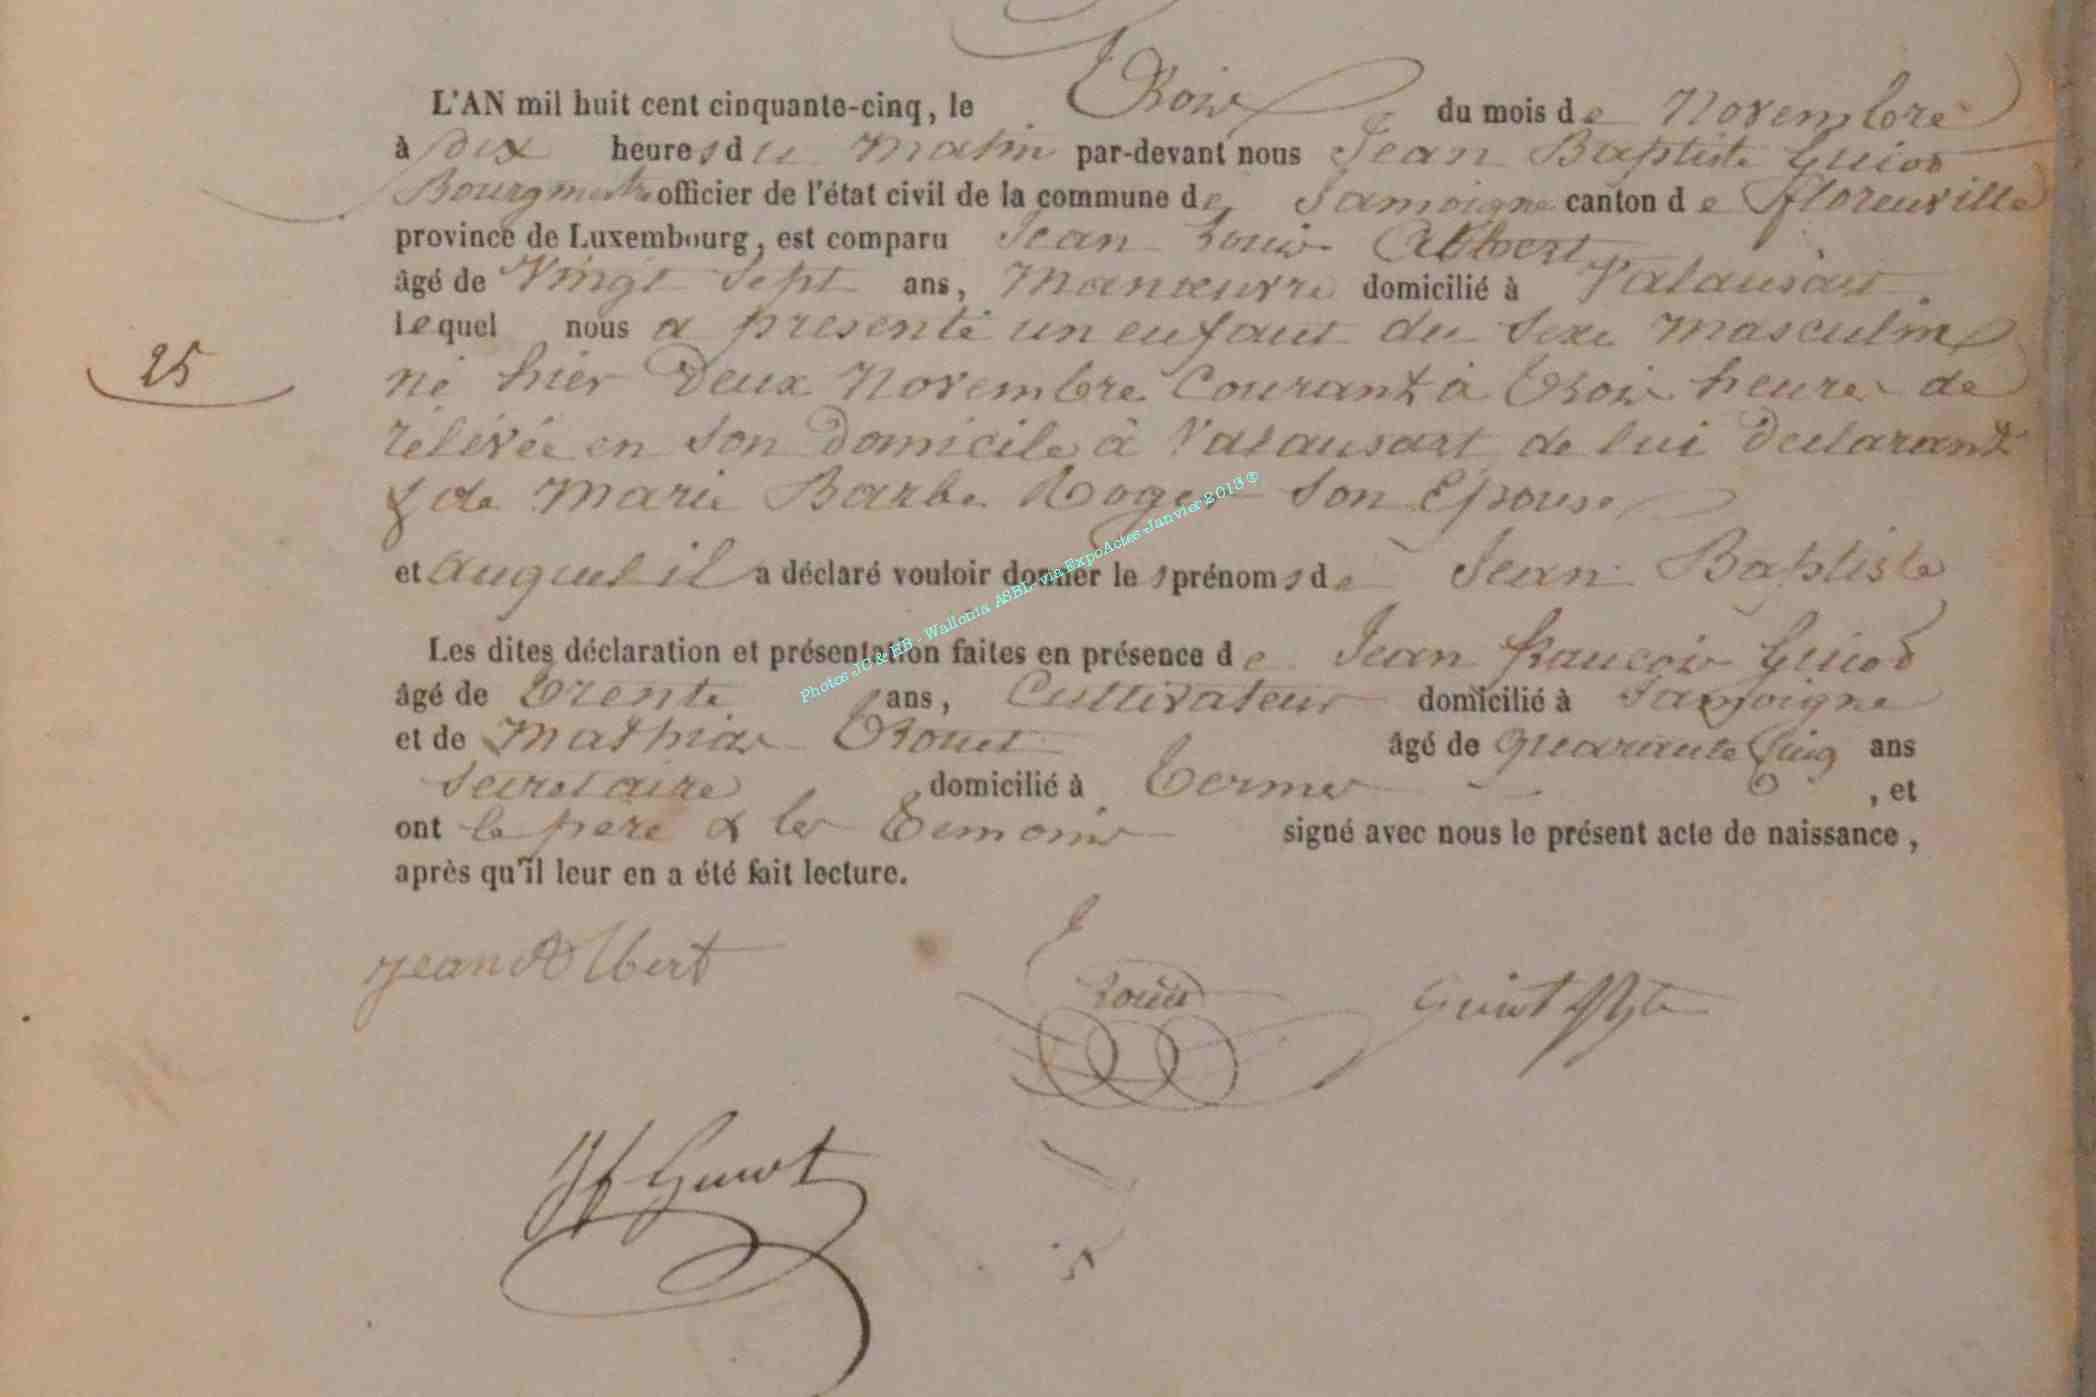 L'AN mil huit cent cinquante-cinq, le Trois du mois de Novembre
à dix heures du matin par-devant nous Jean Baptiste Guiot
Bourgmestre officier de l'état civil de la commune de Jamoigne canton de Florenville
province de Luxembourg, est comparu Jean Louis Albert
âgé de Vingt Sept ans, Manœuvre domicilié à Valansart
lequel nous a présenté un enfant du sexe masculin
né hier Deux Novembre Courant à Trois heures de
relevée en son Domicile à Valansart de lui Declarant
& de Marie Barbe Roger son Epouse
et auquel il a déclaré vouloir donner les prénoms de Jean Baptiste
Les dites déclaration et présentation faites en présence de Jean françois Guiot
âgé de Trente ans, Cultivateur domicilié à Jamoigne
et de Mathias Trouet âgé de quarante Cinq ans
Secretaire domicilié à Termes, et
ont le père & les Temoins signé avec nous le présent acte de naissance,
après qu'il leur en a été fait lecture.
25
jean Albert
Guiot JBte
Jf Guiot
Photos JC & EB - Wallonia ASBL via ExpoActes Janvier 2013 ©